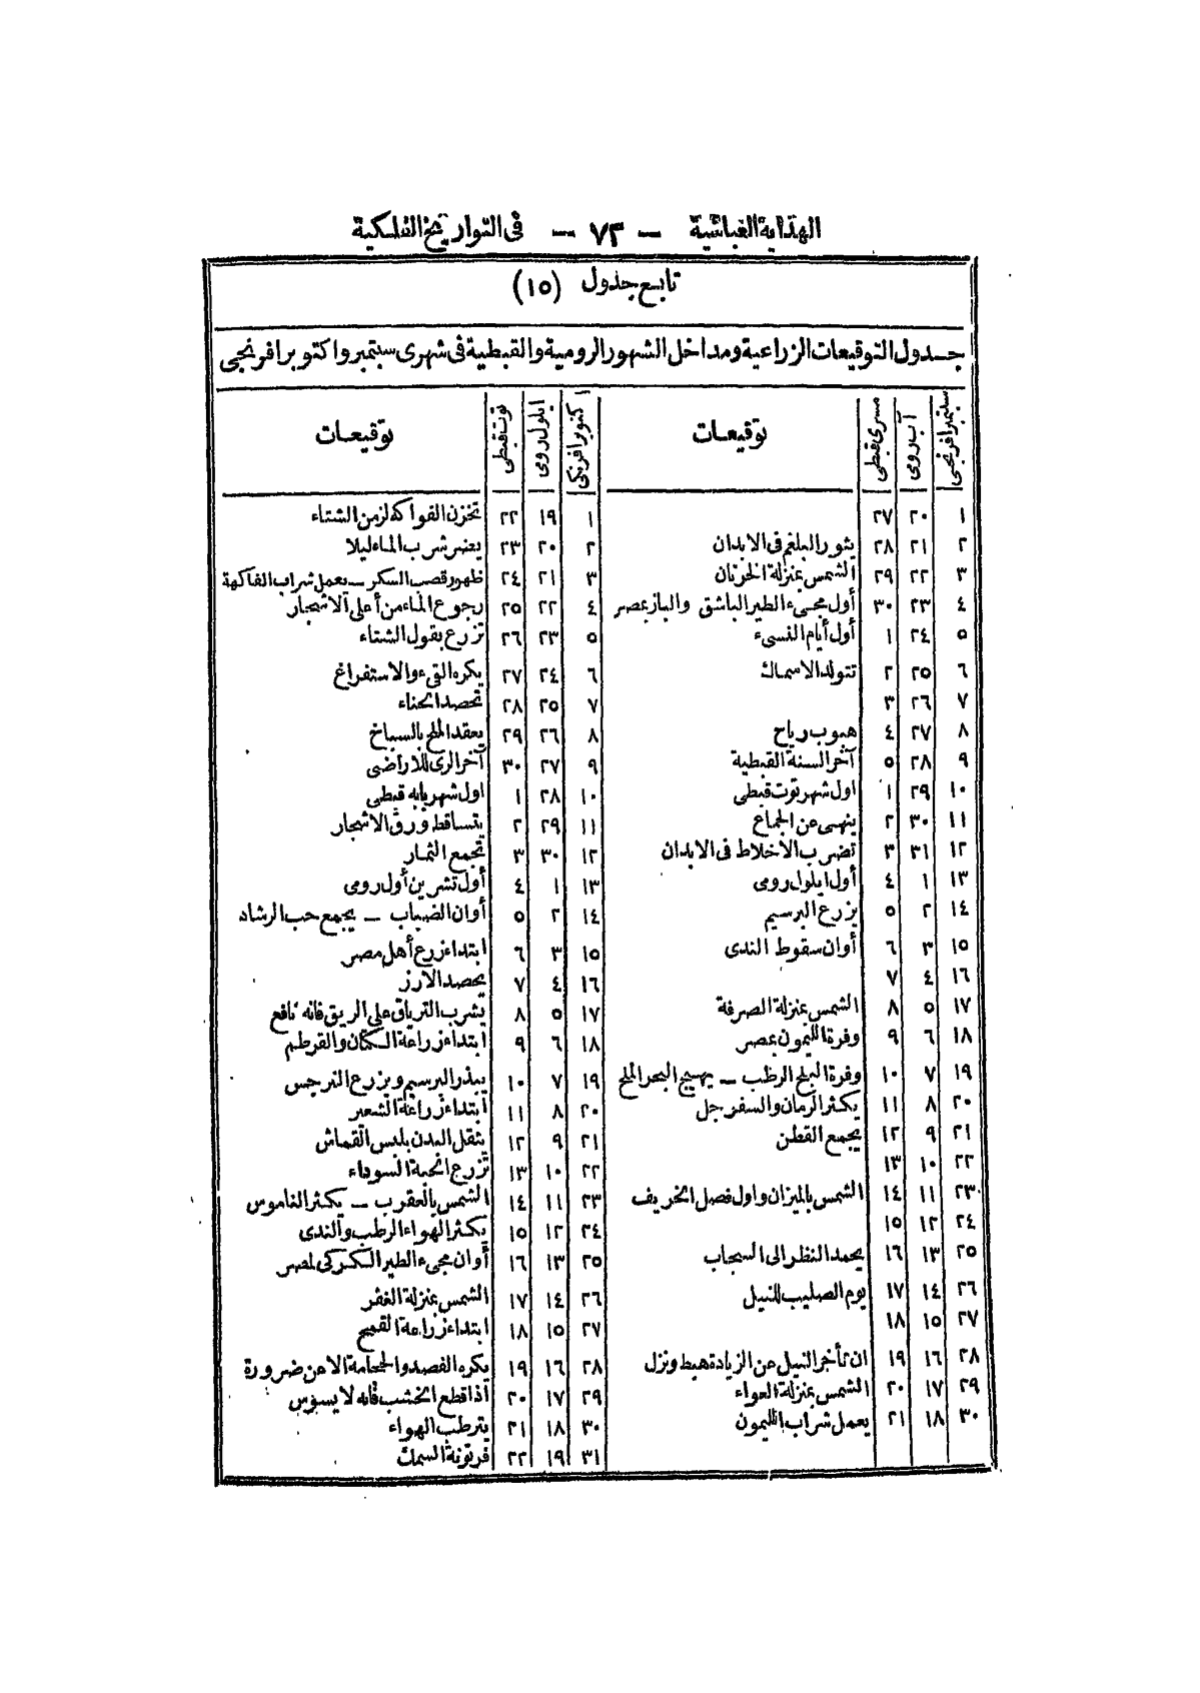 الهداية العباسية — ٧٣ — فى التواريخ الفلكية
تابع جدول (١٥)
جدول التوقيعات الزراعية ومداخل الشهور الرومية والقبطية فى شهرى سبتمبر واكتوبر افرنجى
سبتمبر افرنجى آب رومى مسرى قبطى توقيعات اكتوبر افرنكى ايلول رومى توت قبطى توقيعات
١ ٢٠ ٢٧ ١ ١٩ ٢٢ تخزن الفواكه لزمن الشتاء
٢ ٢١ ٢٨ يثور البلغم فى الابدان ٢ ٢٠ ٢٣ يضر شرب الماء ليلا
٣ ٢٢ ٢٩ الشمس بمنزلة الخرتان ٣ ٢١ ٢٤ ظهور قصب السكر — يعمل شراب الفاكهة
٤ ٢٣ ٣٠ أول مجىء الطير الباشق والباز بمصر ٤ ٢٢ ٢٥ رجوع الماء من أعلى الاشجار
٥ ٢٤ ١ أول أيام النسىء ٥ ٢٣ ٢٦ تزرع بقول الشتاء
٦ ٢٥ ٢ تتولد الاسماك ٦ ٢٤ ٢٧ يكره القىء والاستفراغ
٧ ٢٦ ٣ ٧ ٢٥ ٢٨ تحصد الحناء
٨ ٢٧ ٤ هبوب رياح ٨ ٢٦ ٢٩ يعقد الملح بالسباخ
٩ ٢٨ ٥ آخر السنة القبطية ٩ ٢٧ ٣٠ آخر الرى للاراضى
١٠ ٢٩ ١ اول شهر توت قبطى ١٠ ٢٨ ١ اول شهر بابه قبطى
١١ ٣٠ ٢ ينهى عن الجماع ١١ ٢٩ ٢ يتساقط ورق الاشجار
١٢ ٣١ ٣ تضرب الاخلاط فى الابدان ١٢ ٣٠ ٣ تجمع الثمار
١٣ ١ ٤ أول ايلول رومى ١٣ ١ ٤ أول تشرين أول رومى
١٤ ٢ ٥ يزرع البرسيم ١٤ ٢ ٥ أوان الضباب — يجمع حب الرشاد
١٥ ٣ ٦ أوان سقوط الندى ١٥ ٣ ٦ ابتداء زرع أهل مصر
١٦ ٤ ٧ ١٦ ٤ ٧ يحصد الارز
١٧ ٥ ٨ الشمس بمنزلة الصرفة ١٧ ٥ ٨ يشرب الترياق على الريق فانه نافع
١٨ ٦ ٩ وفرة الليمون بمصر ١٨ ٦ ٩ ابتداء زراعة الكتان والقرطم
١٩ ٧ ١٠ وفرة البلح الرطب — يهيج البحر الملح ١٩ ٧ ١٠ يبذر البرسيم ويزرع النرجس
٢٠ ٨ ١١ يكثر الرمان والسفرجل ٢٠ ٨ ١١ ابتداء زراعة الشعير
٢١ ٩ ١٢ يجمع القطن ٢١ ٩ ١٢ يثقل البدن بلبس القماش
٢٢ ١٠ ١٣ ٢٢ ١٠ ١٣ تزرع الحبة السوداء
٢٣ ١١ ١٤ الشمس بالميزان واول فصل الخريف ٢٣ ١١ ١٤ الشمس بالعقرب — يكثر الناموس
٢٤ ١٢ ١٥ ٢٤ ١٢ ١٥ يكثر الهواء الرطب والندى
٢٥ ١٣ ١٦ يحمد النظر الى السحاب ٢٥ ١٣ ١٦ أوان مجىء الطير الكركى لمصر
٢٦ ١٤ ١٧ يوم الصليب للنيل ٢٦ ١٤ ١٧ الشمس بمنزلة الغفر
٢٧ ١٥ ١٨ ٢٧ ١٥ ١٨ ابتداء زراعة القمح
٢٨ ١٦ ١٩ ان تأخر النيل عن الزيادة هبط ونزل ٢٨ ١٦ ١٩ يكره الفصد والحجامة الا عن ضرورة
٢٩ ١٧ ٢٠ الشمس بمنزلة العواء ٢٩ ١٧ ٢٠ اذا قطع الخشب فانه لا يسوس
٣٠ ١٨ ٢١ يعمل شراب الليمون ٣٠ ١٨ ٢١ يترطب الهواء
٣١ ١٩ ٢٢ فرتونة السمك